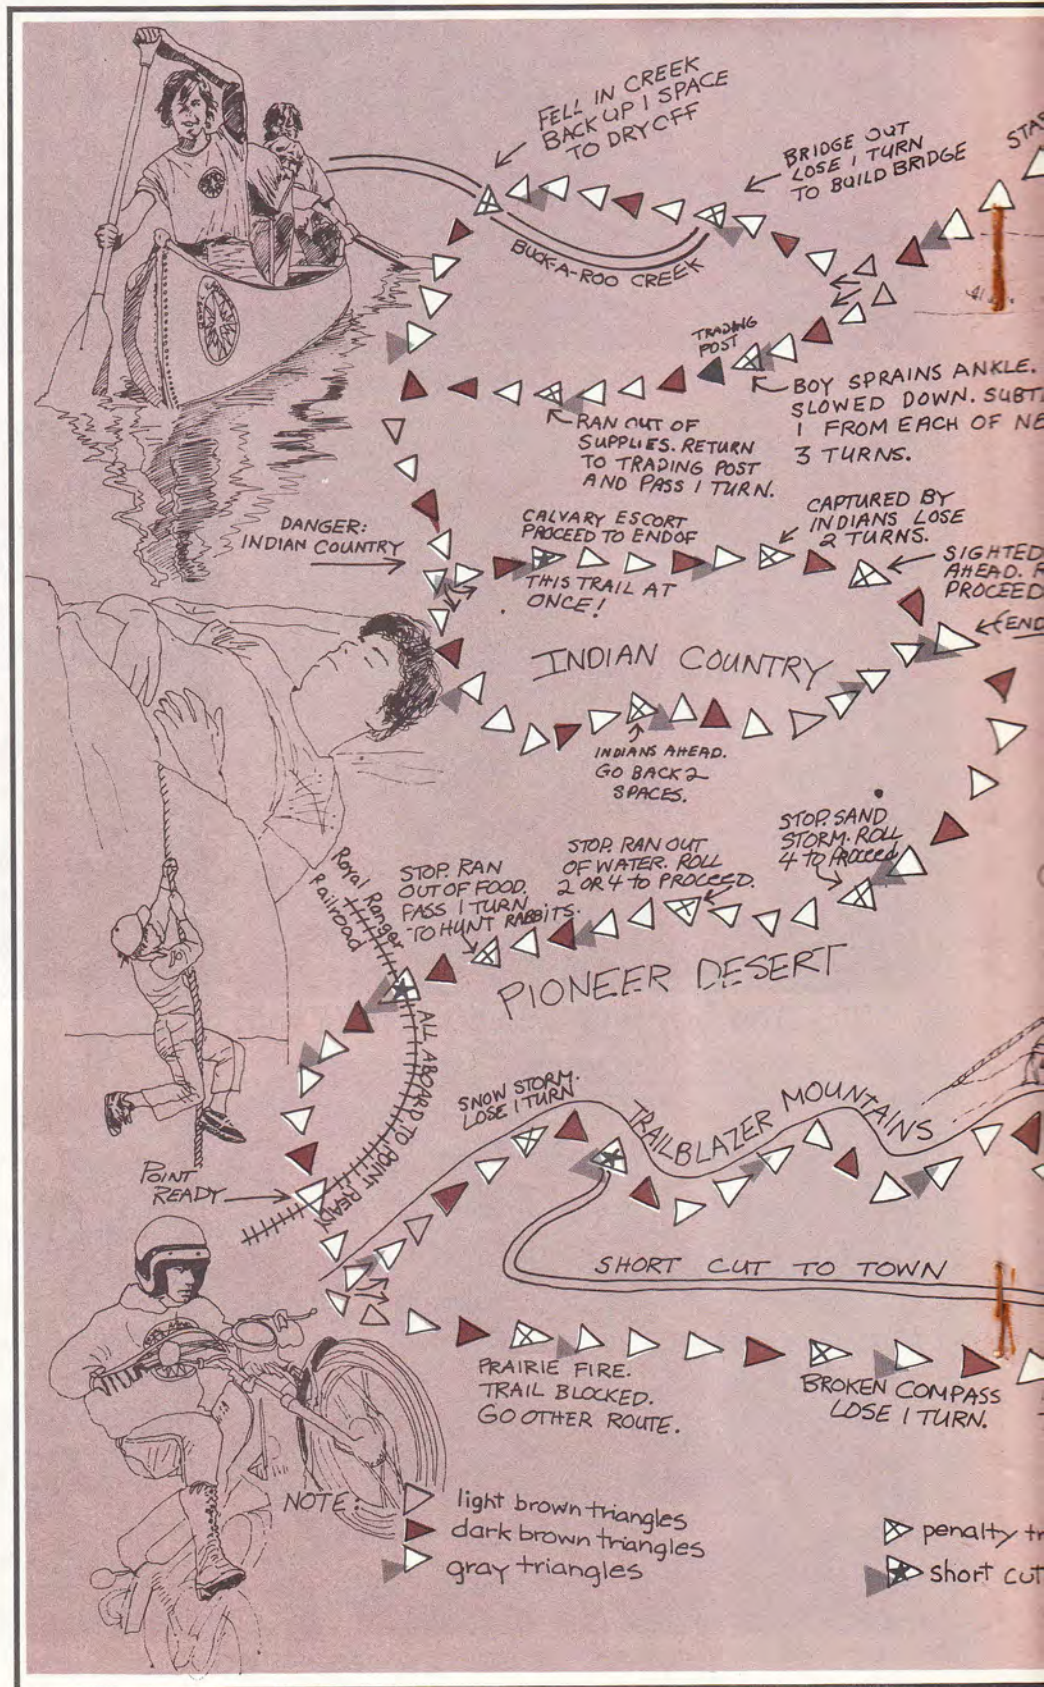 FELL IN CREEK
BACK UP 1 SPACE
TO DRY OFF
BRIDGE OUT
LOSE 1 TURN
TO BUILD BRIDGE
STAR
BUCK-A-ROO CREEK
TRADING
POST
BOY SPRAINS ANKLE.
SLOWED DOWN. SUBT
1 FROM EACH OF NE
3 TURNS.
RAN OUT OF
SUPPLIES. RETURN
TO TRADING POST
AND PASS 1 TURN.
DANGER:
INDIAN COUNTRY
CALVARY ESCORT
PROCEED TO END OF
THIS TRAIL AT
ONCE!
CAPTURED BY
INDIANS LOSE
2 TURNS.
SIGHTED
AHEAD. R
PROCEED
END
INDIAN COUNTRY
INDIANS AHEAD.
GO BACK 2
SPACES.
STOP. SAND
STORM. ROLL
4 TO PROCEED
STOP. RAN OUT
OF WATER. ROLL
2 OR 4 TO PROCEED.
STOP. RAN
OUT OF FOOD.
PASS 1 TURN
TO HUNT RABBITS.
Royal Ranger
Railroad
PIONEER DESERT
ALL ABOARD TO POINT READY
SNOW STORM.
LOSE 1 TURN
TRAILBLAZER MOUNTAINS
POINT
READY
SHORT CUT TO TOWN
PRAIRIE FIRE.
TRAIL BLOCKED.
GO OTHER ROUTE.
BROKEN COMPASS
LOSE 1 TURN.
NOTE:
light brown triangles
dark brown triangles
gray triangles
penalty tr
short cut